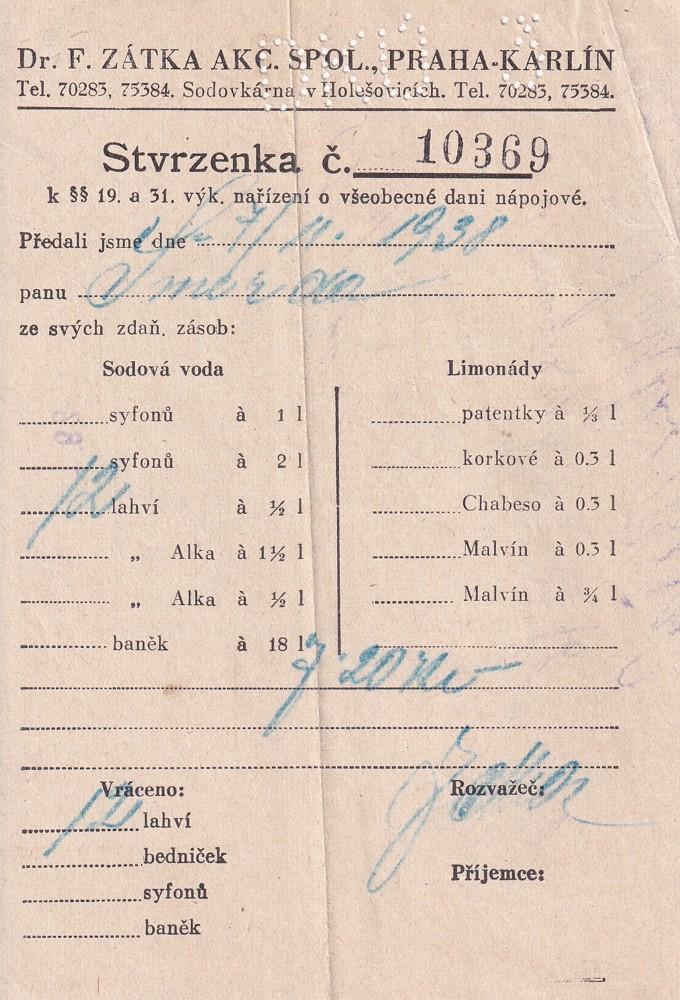 Dr. F. ZÁTKA AKC. SPOL., PRAHA-KARLÍN
Tel. 70283, 75384. Sodovkárna v Holešovicích. Tel. 70283, 75384.
Stvrzenka č. 10369
k §§ 19. a 31. výk. nařízení o všeobecné dani nápojové.
Předali jsme dne 7/11. 1938
panu
ze svých zdaň. zásob:
Sodová voda
syfonů à 1 l
syfonů à 2 l
12 lahví à ½ l
„ Alka à 1½ l
„ Alka à ½ l
baněk à 18 l
Limonády
patentky à ⅓ l
korkové à 0.3 l
Chabeso à 0.3 l
Malvín à 0.3 l
Malvín à ¾ l
7.20 Kč
Vráceno:
12 lahví
bedniček
syfonů
baněk
Rozvažeč:
Příjemce: